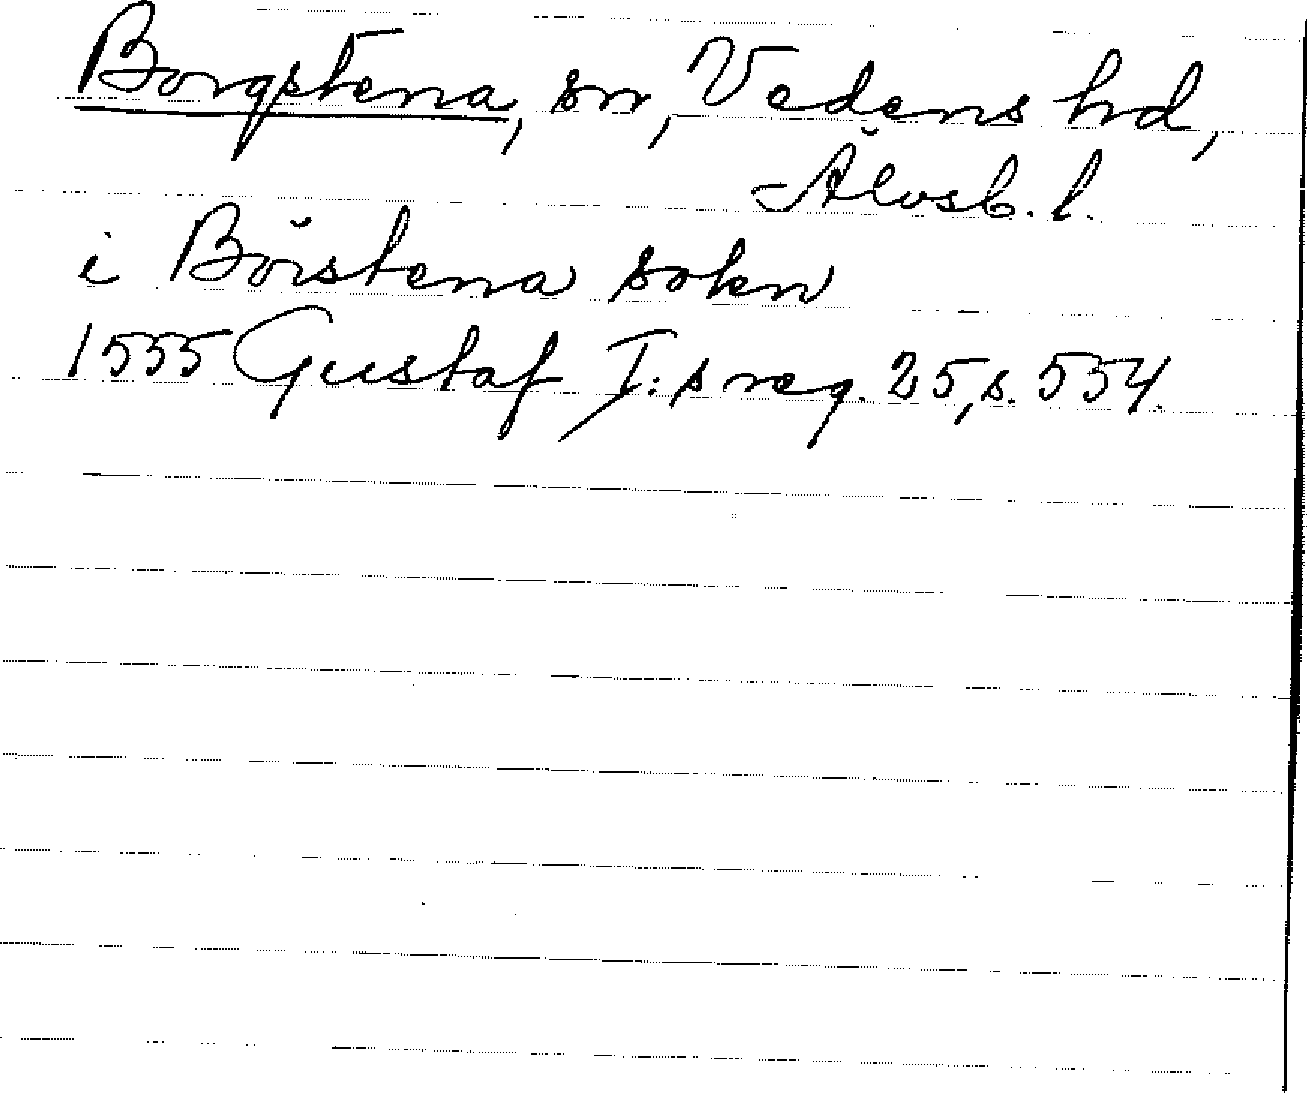 Borgstena, sn, Vedens hd,
Älvsb. l.
i Börstena sokn
1555 Gustaf I:s reg. 25, s. 554.